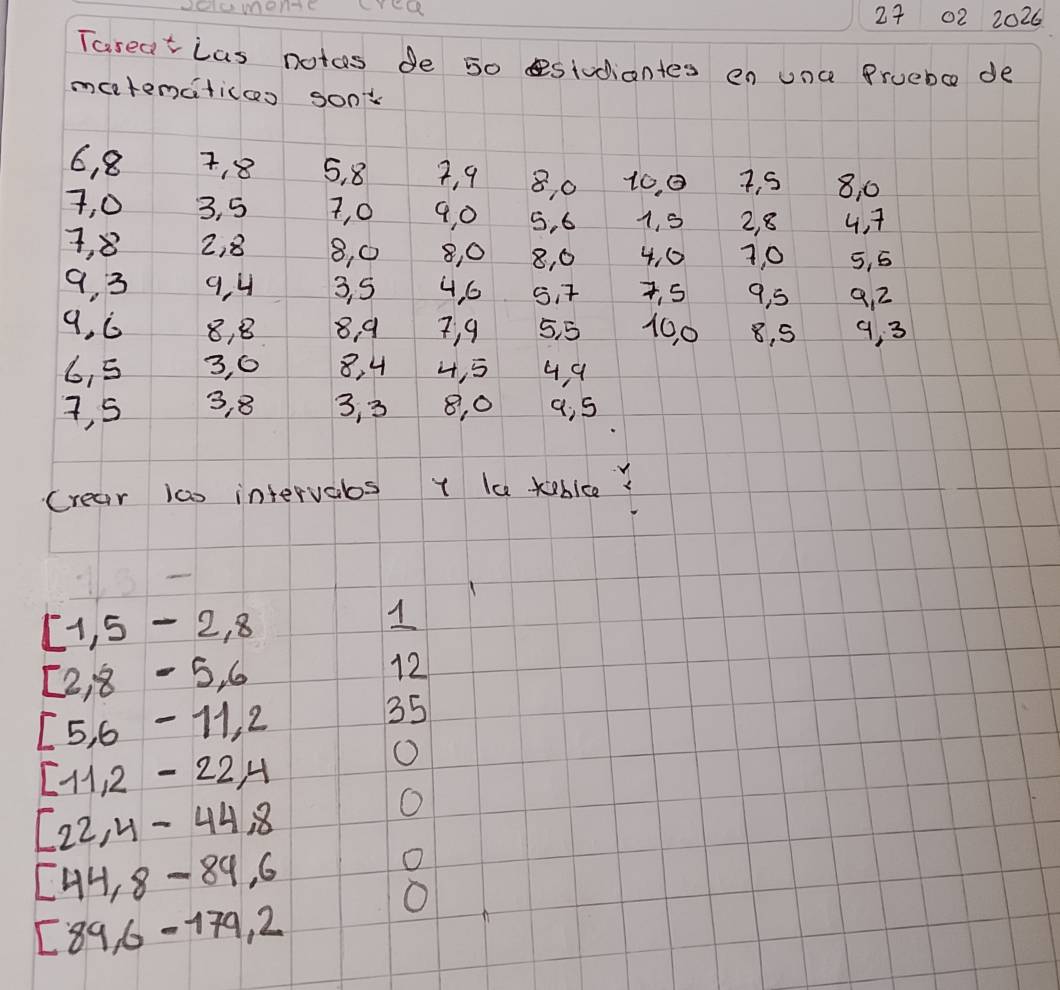 27 02 2026
Tarea: Las notas de 50 estudiantes en una Prueba de
matemáticas son:
6,8 7,8 5,8 7,9 8,0 10,0 7,5 8,0
7,0 3,5 7,0 9,0 5,6 1,5 2,8 4,7
7,8 2,8 8,0 8,0 8,0 4,0 7,0 5,5
9,3 9,4 3,5 4,6 5,7 7,5 9,5 9,2
9,6 8,8 8,9 7,9 5,5 10,0 8,5 9,3
6,5 3,0 8,4 4,5 4,9
7,5 3,8 3,3 8,0 9,5
Crear los intervalos Y la tabla
[1,5 - 2,8 1
[2,8 - 5,6 12
[5,6 - 11,2 35
[11,2 - 22,4 0
[22,4 - 44,8 0
[44,8 - 89,6 0
[89,6 - 179,2 0